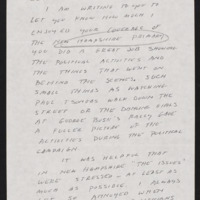 I AM WRITING TO YOU TO
LET YOU KNOW HOW MUCH I
ENJOYED YOUR COVERAGE OF
THE NEW HAMPSHIRE PRIMARY.
YOU DID A GREAT JOB SHOWING
THE POLITICAL ACTIVITIES AND
THE THINGS THAT WENT ON
BEHIND THE SCENES. SUCH
SMALL ITEMS AS
PAUL TSONGAS WALK DOWN THE
STREET OR THE
AT GEORGE BUSH'S PARTY GAVE
A FULLER PICTURE OF THE
ACTIVITIES DURING THE
CAMPAIGN.
IT WAS HELPFUL THAT
IN NEW HAMPSHIRE "THE ISSUES"
WERE STRESSED - AT LEAST AS
MUCH AS POSSIBLE. I ALWAYS
GET SO ANNOYED WHEN